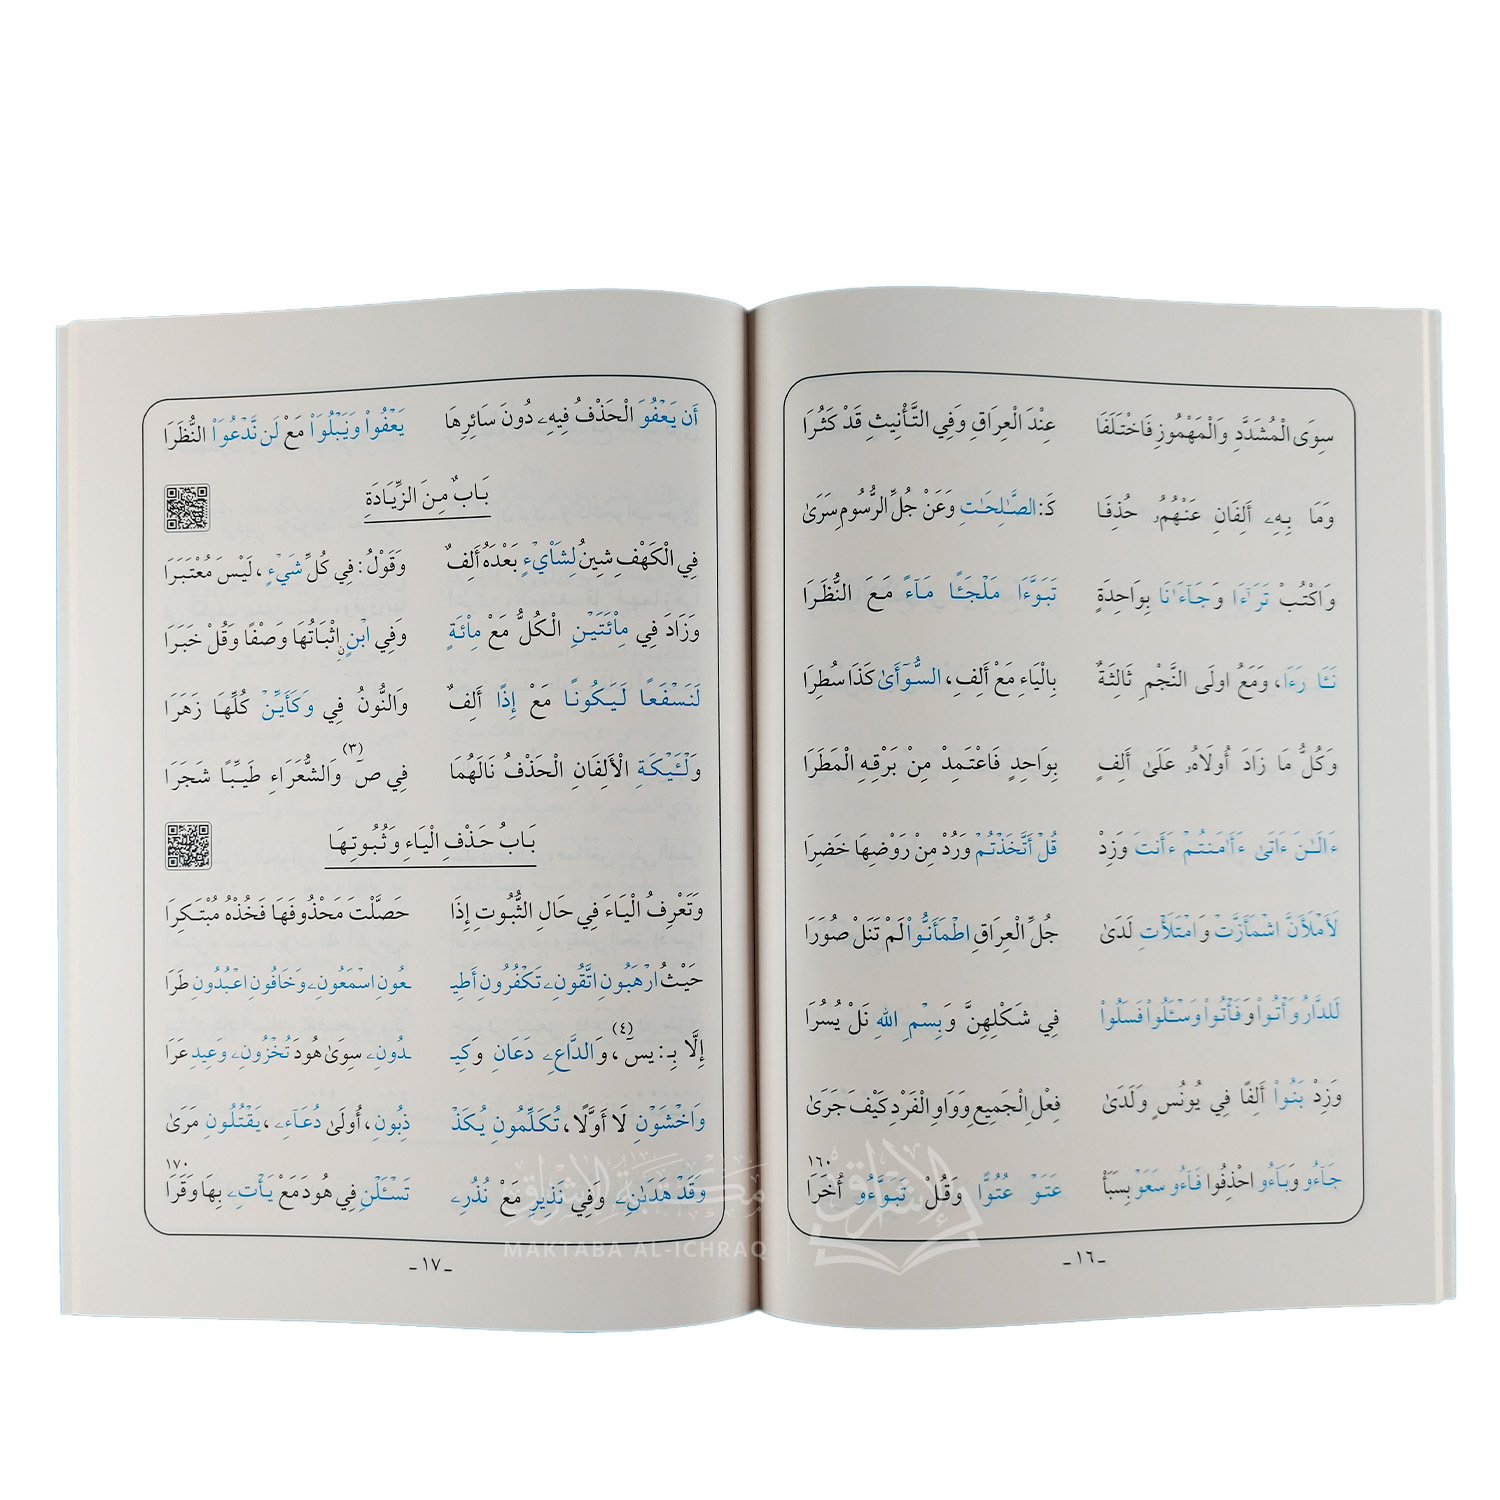 سِوَى الْمُشَدَّدِ وَالْمَهْمُوزِ فَاخْتَلَفَا عِنْدَ الْعِرَاقِ وَفِي التَّأْنِيثِ قَدْ كَثُرَا
وَمَا بِهِۦ أَلِفَانِ عَنْهُمُۥ حُذِفَا كَـ: الصَّٰلِحَٰتِ وَعَنْ جُلِّ الرُّسُومِ سَرَىٰ
وَاكْتُبْ تَرَٰٓءَا وَجَآءَٰنَا بِوَاحِدَةٍ تَبَوَّءَا مَلْجَـًٔا مَآءً مَعَ النُّظَرَا
نَـَٔا رَءَا، وَمَعُ اولَى النَّجْمِ ثَالِثَةٌ بِالْيَاءِ مَعْ أَلِفٍ، السُّوٓأَىٰ كَذَا سُطِرَا
وَكُلُّ مَا زَادَ أُولَاهُۥ عَلَىٰ أَلِفٍ بِوَاحِدٍ فَاعْتَمِدْ مِنْ بَرْقِهِ الْمَطَرَا
ءَالَـٰٔنَ ءَاتَىٰ ءَأَٰمَنتُمْ ءَأَنتَ وَزِدْ قُلْ أَتَّخَذْتُمْ وَرُدْ مِنْ رَوْضِهَا خَضِرَا
لَأَمْلَأَنَّ اشْمَأَزَّتْ وَامْتَلَأْتِ لَدَىٰ جُلِّ الْعِرَاقِ اطْمَأَنُّوا لَمْ تَنَلْ صُوَرَا
لَلدَّارُ وَأْتُوا وَفَأْتُوا وَسْـَٔلُوا فَسَلُوا فِي شَكْلِهِنَّ وَبِسْمِ اللهِ نَلْ يُسُرَا
وَزِدْ بَنُوا أَلِفًا فِي يُونُسٍ وَلَدَىٰ فِعْلِ الْجَمِيعِ وَوَاوِ الْفَرْدِ كَيْفَ جَرَىٰ
١٦٠
جَآءُو وَبَآءُو احْذِفُوا فَآءُو سَعَوْ بِسَبَأْ عَتَوْ عُتُوًّا وَقُلْ تَبَوَّءُو أُخَرَا
ـ ١٦ ـ
أَن يَعْفُوَ الْحَذْفُ فِيهِۦ دُونَ سَائِرِهَا يَعْفُوا وَيَبْلُوَا مَعْ لَن نَّدْعُوَا النُّظَرَا
بَابٌ مِنَ الزِّيَادَةِ
فِي الْكَهْفِ شِينُ لِشَاْيْءٍ بَعْدَهُ أَلِفٌ وَقَوْلُ: فِي كُلِّ شَيْءٍ، لَيْسَ مُعْتَبَرَا
وَزَادَ فِي مِاْئَتَيْنِ الْكُلُّ مَعْ مِاْئَةٍ وَفِي ابْنٍ اِثْبَاتُهَا وَصْفًا وَقُلْ خَبَرَا
لَنَسْفَعًا لَيَكُونًا مَعْ إِذًا أَلِفٌ وَالنُّونُ فِي وَكَأَيِّنْ كُلِّهَا زَهَرَا
وَلْـَٔيْكَةِ الْأَلِفَانِ الْحَذْفُ نَالَهُمَا فِي صٓ (٣) وَالشُّعَرَاءِ طَيِّبًا شَجَرَا
بَابُ حَذْفِ الْيَاءِ وَثُبُوتِهَا
وَتَعْرِفُ الْيَاءَ فِي حَالِ الثُّبُوتِ إِذَا حَصَّلْتَ مَحْذُوفَهَا فَخُذْهُ مُبْتَكِرَا
حَيْثُ ارْهَبُونِ اتَّقُونِۦ تَكْفُرُونِ أَطِيـ ـعُونِ اسْمَعُونِۦ وَخَافُونِ اعْبُدُونِ طَرَا
إِلَّا بِـ: يسٓ (٤)، وَالدَّاعِۦ دَعَانِ وَكِيـ ـدُونِۦ سِوَىٰ هُودَ تُخْزُونِۦ وَعِيدِ عَرَا
وَاخْشَوْنِ لَا أَوَّلًا، تُكَلِّمُونِ يُكَذْ ذِبُونِ، أُولَىٰ دُعَآءِۦ، يَقْتُلُونِ مَرَىٰ
١٧٠
وَقَدْ هَدَىٰنِۦ وَفِي نَذِيرِ مَعْ نُذُرِۦ تَسْـَٔلْنِ فِي هُودَ مَعْ يَأْتِۦ بِهَا وَقَرَا
ـ ١٧ ـ
مكتبة الإشراق
MAKTABA AL-ICHRAQ
الإشراق